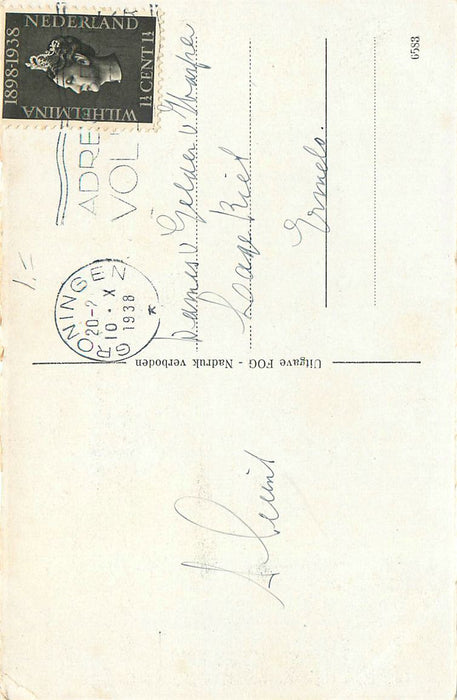 NEDERLAND
1898-1938
WILHELMINA
1½ CENT 1½
ADRE
VOL
GRONINGEN
20-?
10·X
1938
Dames v. Gelder v
Ermelo.
Uitgave FOG - Nadruk verboden
6583